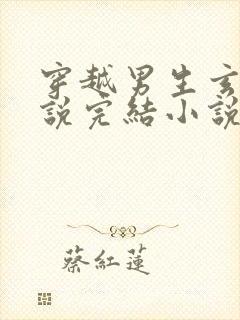 穿越男生玄
說完結小說
蔡紅蓮